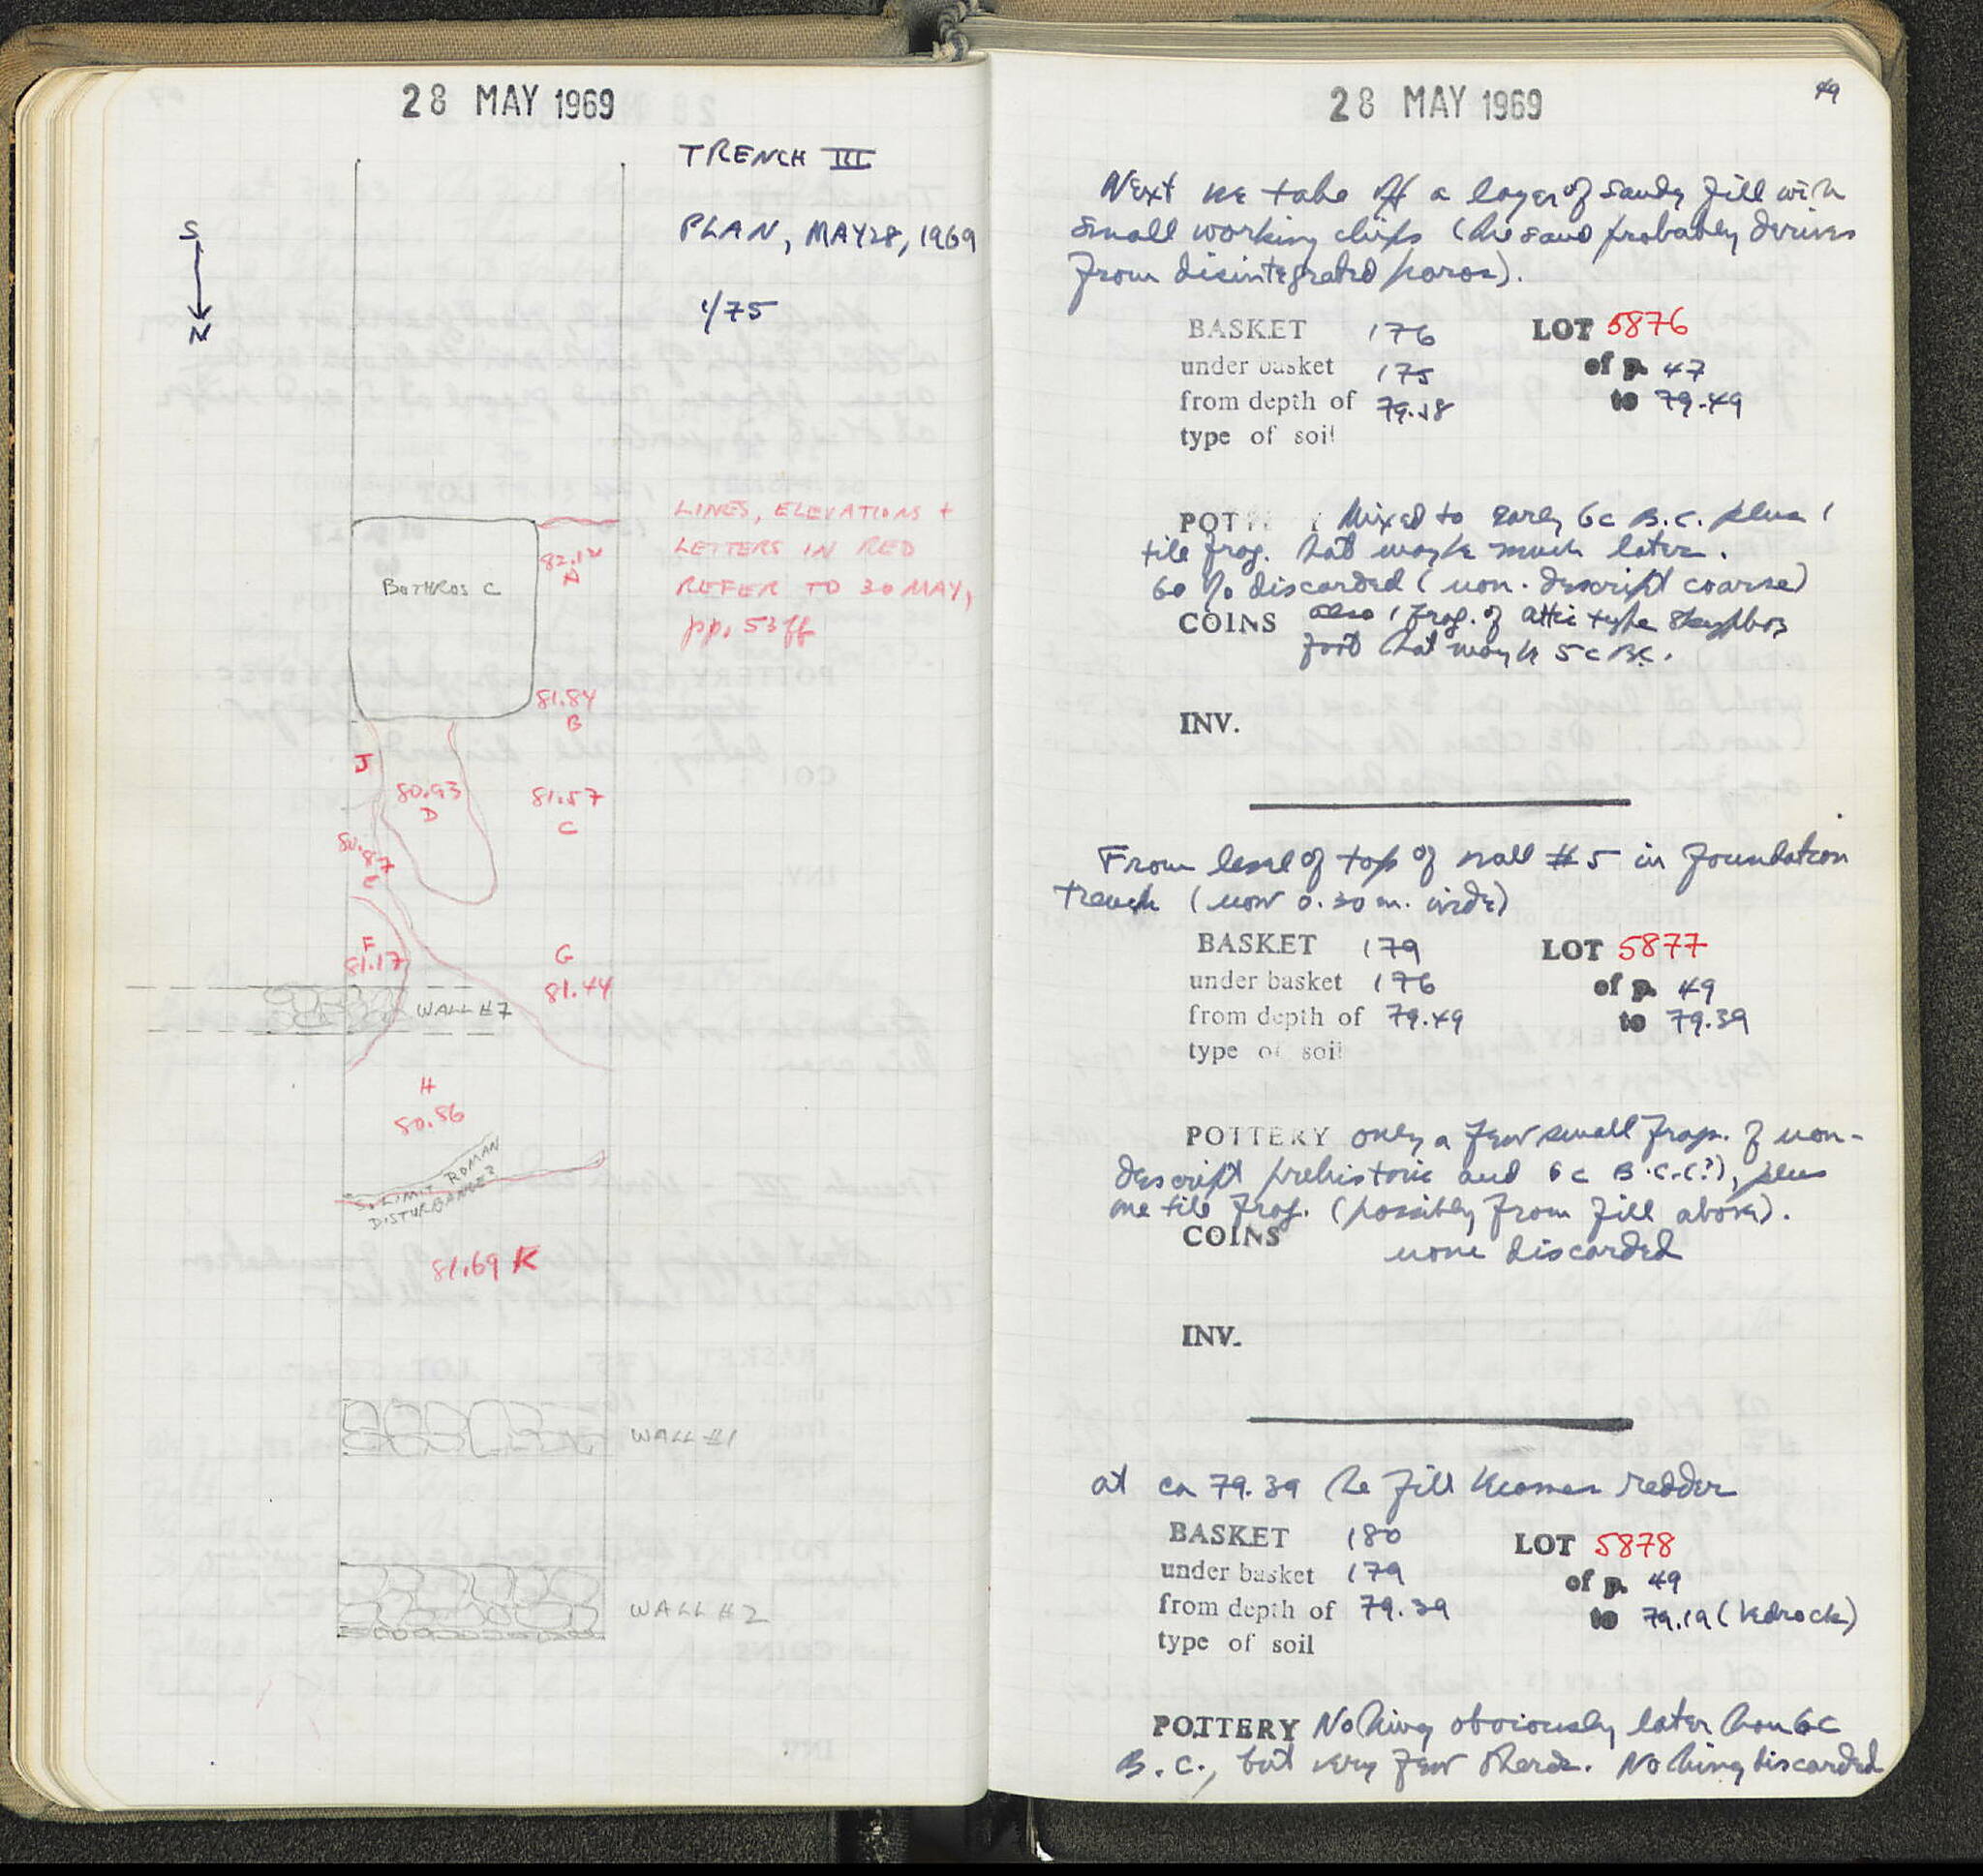 28 MAY 1969
TRENCH III
PLAN, MAY 28, 1969
1/75
S
N
LINES, ELEVATIONS +
LETTERS IN RED
REFER TO 30 MAY,
pp. 53 ff
82.12
A
BOTHROS C
81.84
B
J
80.93
D
81.57
C
80.87
E
F
81.17
G
81.44
WALL #7
H
80.86
S. LIMIT ROMAN
DISTURBANCE?
81.69 K
WALL #1
WALL #2
28 MAY 1969
49
Next we take off a layer of sandy fill with
small working chips (the sand probably derives
from disintegrated poros).
BASKET 176 LOT 5876
under basket 175 of p. 47
from depth of 79.58 to 79.49
type of soil
POTTERY Mixed to early 6c B.C. plus 1
tile frag. that may be much later.
60% discarded (non-descript coarse)
COINS also 1 frag. of Attic type skyphos
foot that may be 5c BC.
INV.
From level of top of wall #5 in foundation
trench (now 0.30 m. wide)
BASKET 179 LOT 5877
under basket 176 of p. 49
from depth of 79.49 to 79.39
type of soil
POTTERY only a few small frags. of non-
descript prehistoric and 6c B.C.(?), plus
one tile frag. (possibly from fill above).
COINS
none discarded
INV.
at ca 79.39 the fill becomes redder
BASKET 180 LOT 5878
under basket 179 of p. 49
from depth of 79.39 to 79.19 (bedrock)
type of soil
POTTERY Nothing obviously later than 6c
B.C., but very few sherds. Nothing discarded